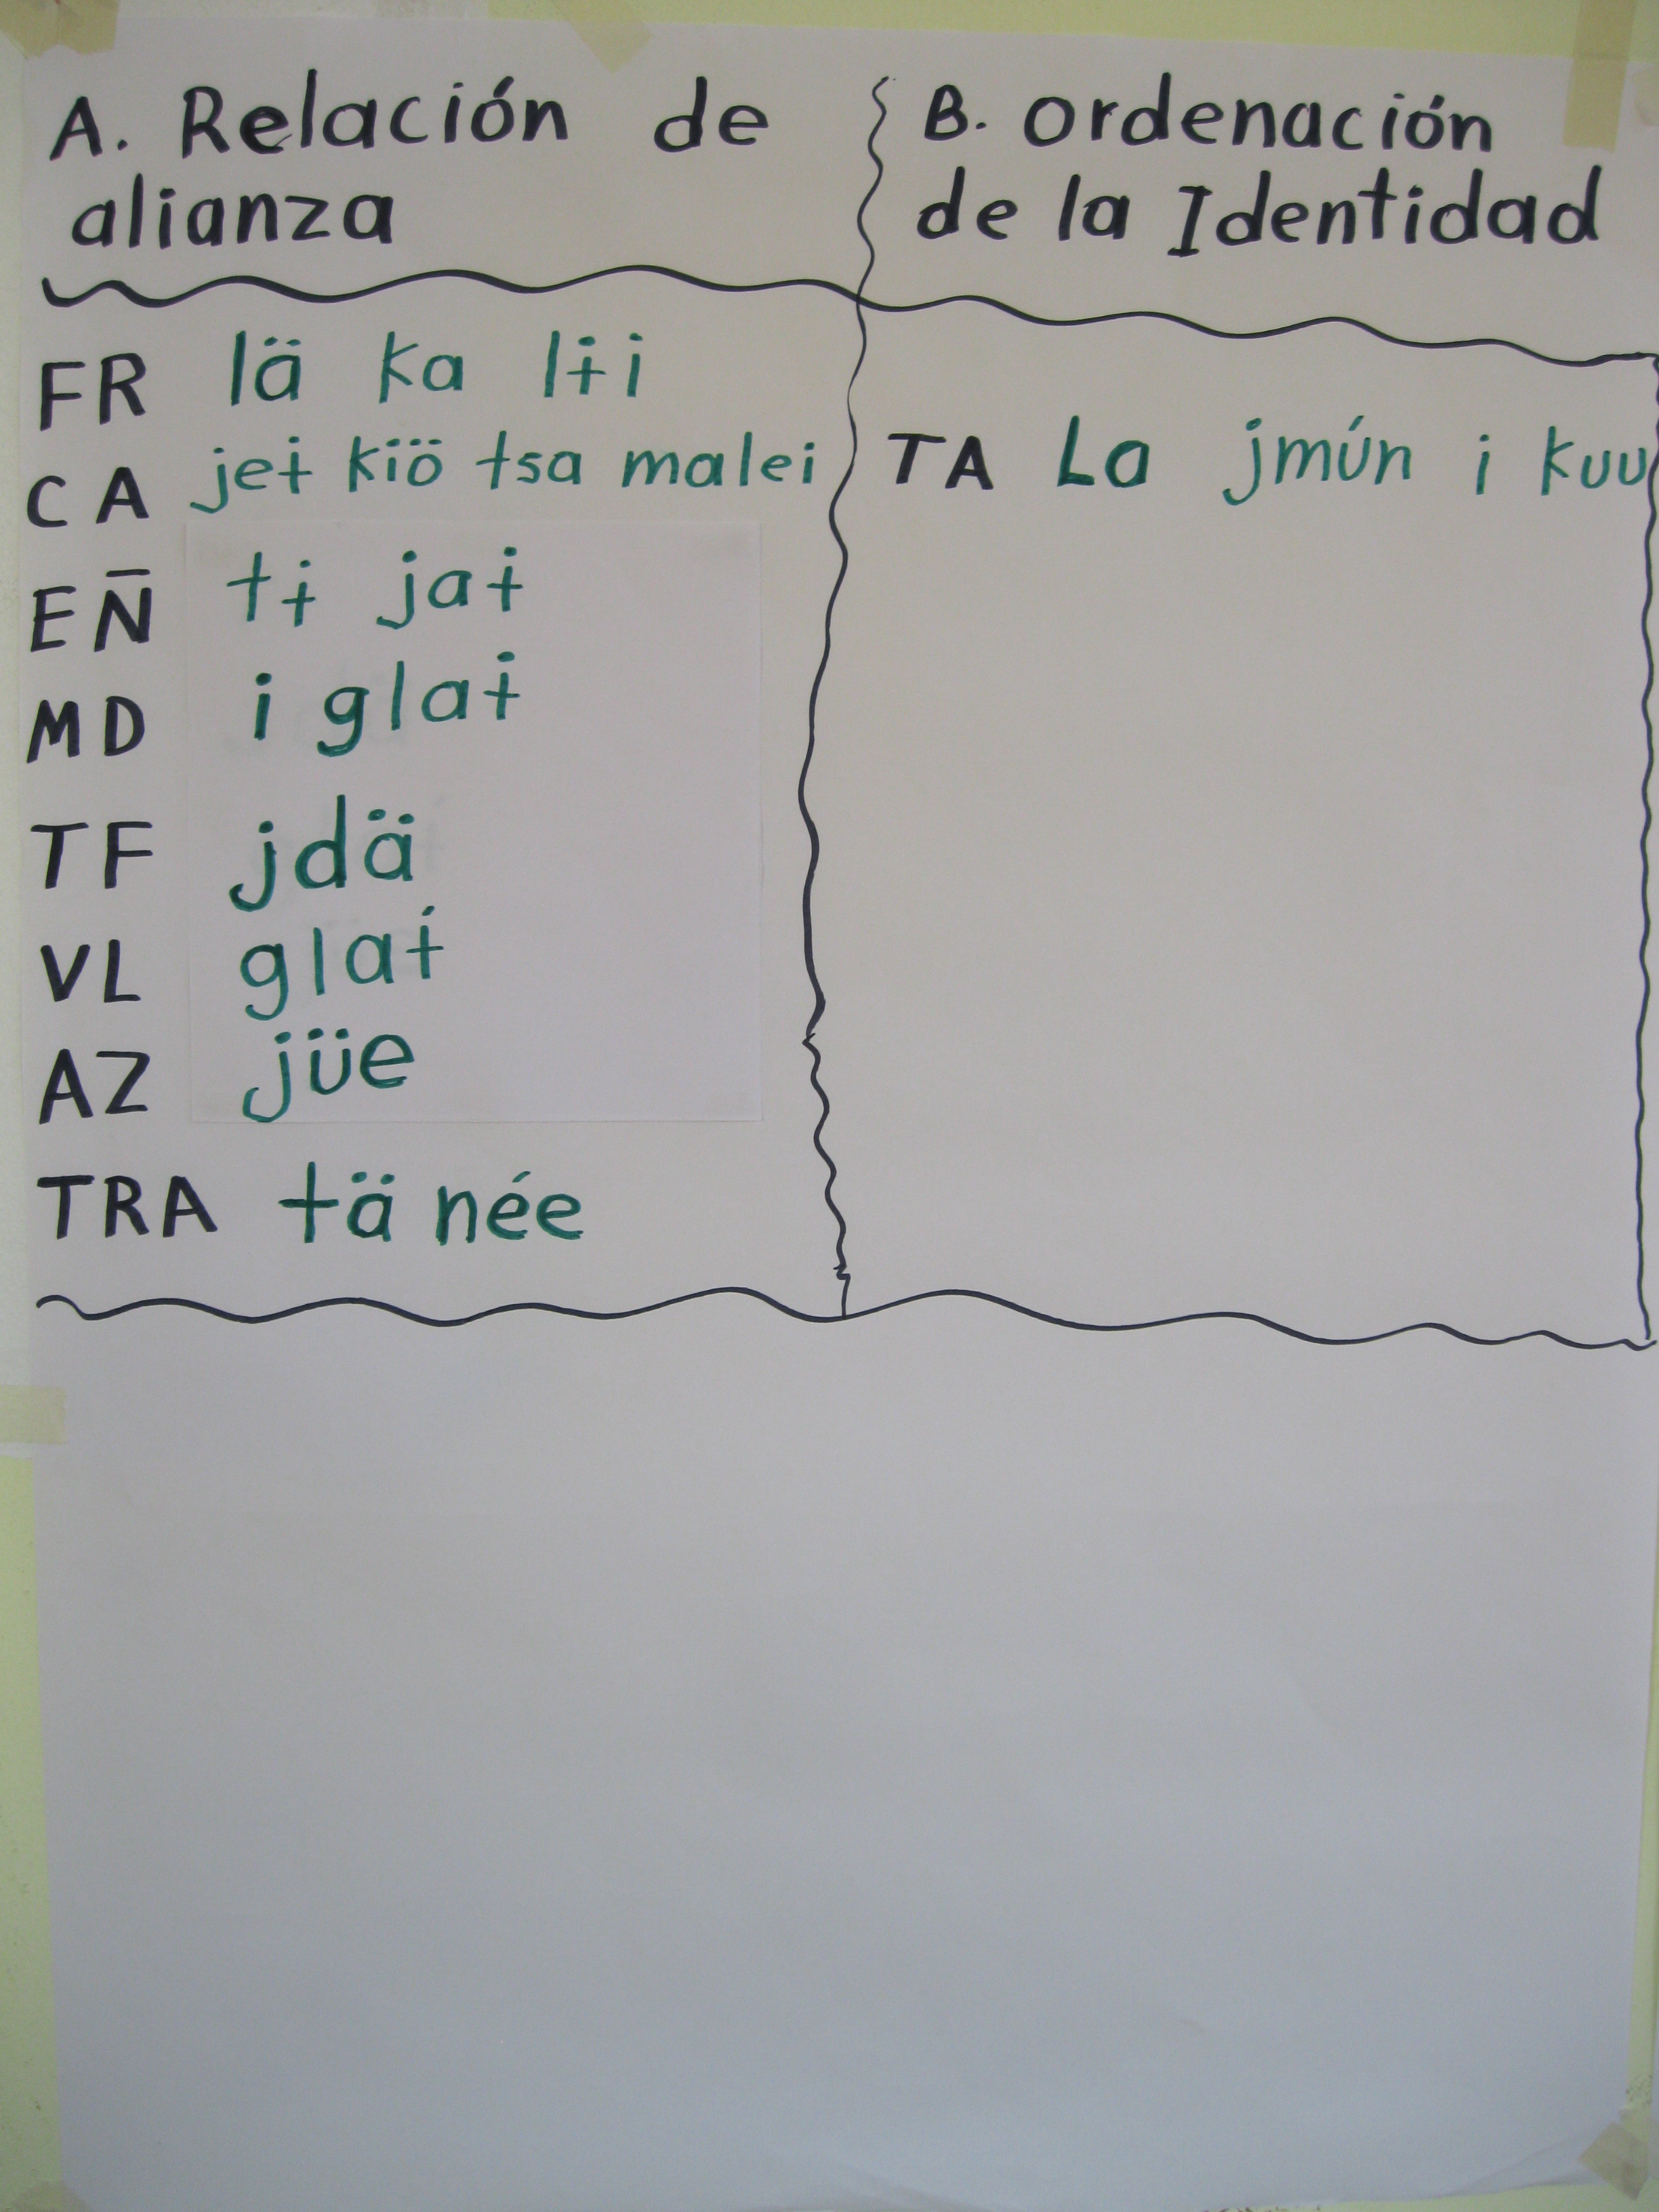 A. Relación de
alianza
B. Ordenación
de la Identidad
FR lä ka lɨi
CA jeɨ kïö tsa malei
EÑ tɨ jaɨ
MD i glaɨ
TF jdä
VL glaɨ́
AZ jüe
TRA tä née
TA La jmún i kuu